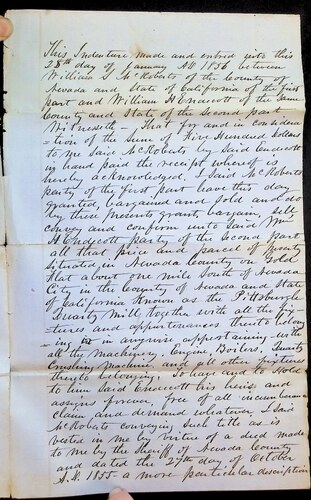 This Indenture made and entred into this
28th day of January AD. 1856 between
William S McRoberts of the County of
Nevada and State of California of the first
part and William H Endecott of the same
County and State of the Second part
Witnesseth – That for and in considera
-tion of the Sum of Five Hundred dollars
to me Said McRoberts by Said Endecott
in hand paid the receipt whereof is
hereby acknowledged. I Said McRoberts
party of the first part have this day
granted, bargained and sold and do
by these Presents grant bargain, sell
convey and confirm unto Said
H Endecott party of the Second part
all that piece and parcel of
situated in Nevada County on Gold
flat about one mile South of Nevada
City in the County of Nevada and State
of California Known as the Pittsburgh
Quartz Mill together with all the fix-
-tures and appurtenances thereto belong
-ing in anywise appertaining – with
all the Machinery. Engine, Boilers, Quartz
Crushing Machine and all other fixtures
thereto belonging. To have and to Hold
to him Said Endecott his heirs and
assigns forever, free of all incumbrance
claim and demand whatever I said
McRoberts conveying Such title as is
vested in me by virtue of a deed made
to me by the Sheriff of Nevada County
and dated the 27th day of October
A.D. 1855 – a more particular description